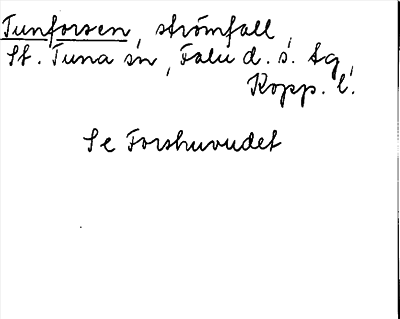 Tunforsen, strömfall,
St. Tuna sn, Falu d. s. tg,
Kopp. l.
Se Forshuvudet